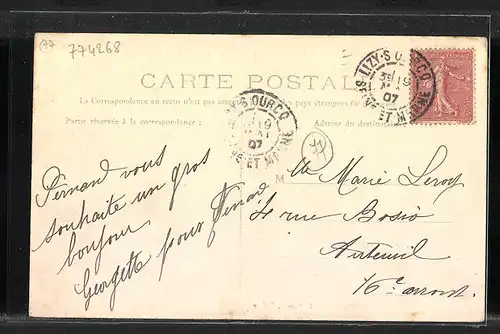 77
774268
CARTE POSTALE
La Correspondance au recto n'est pas
pays étrangers
Partie réservée à la correspondance
Adresse du destinataire
LIZY-S-OURCQ
19
07
SNE ET MARNE
S-OURCQ
19
MAI
07
ET MARNE
Fernand vous
souhaite un gros
bonjour
Georgette pour Fernand
M
Marie Leroy
4 rue Bosio
Auteuil
16e arrond.